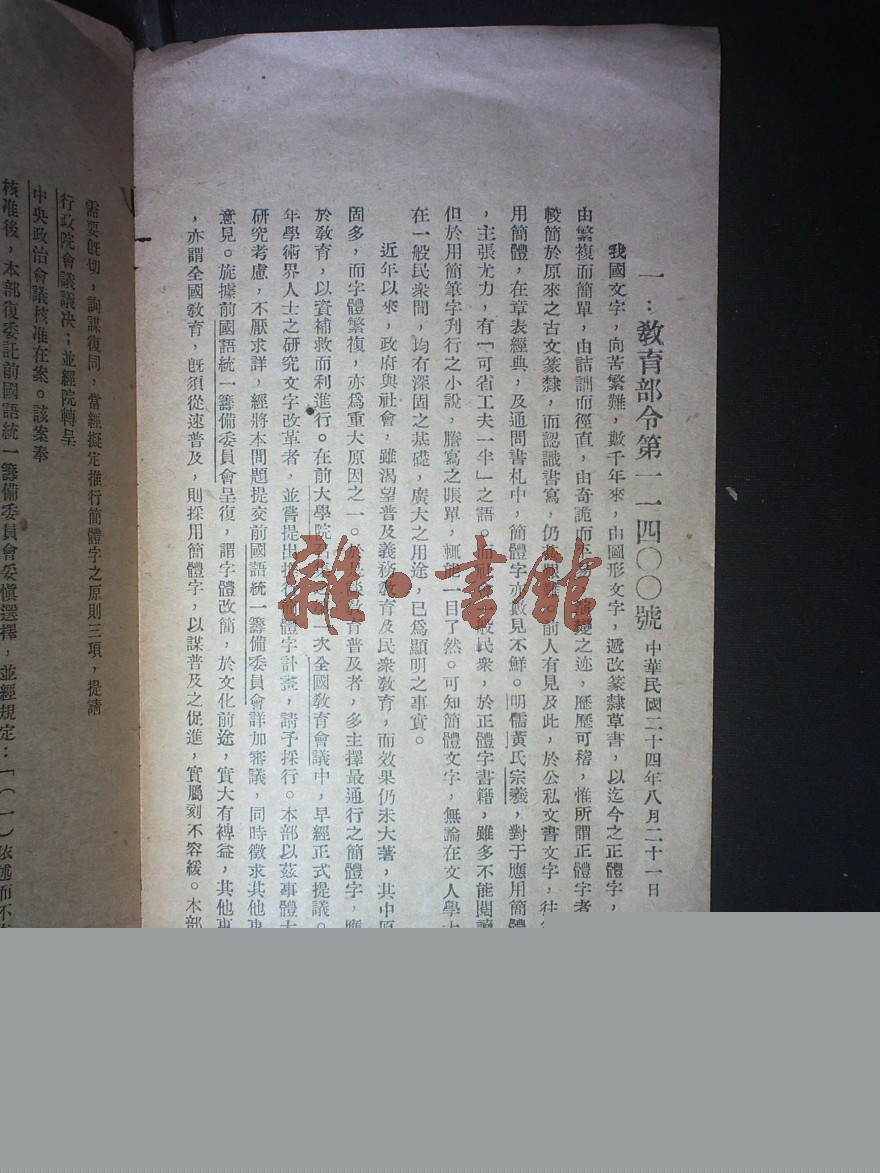 一：教育部令第一一四〇〇號 中華民國二十四年八月二十一日
我國文字，向苦繁難，數千年來，由圖形文字，遞改篆隸草書，以迄今之正體字，
由繁複而簡單，由詰詘而徑直，由奇詭而之迹，歷歷可稽，惟所謂正體字者
較簡於原來之古文篆隸，而認識書寫，仍前人有見及此，於公私文書文字，往
用簡體，在章表經典，及通問書札中，簡體字亦數見不鮮。明儒黃氏宗羲，對于應用簡體
，主張尤力，有「可省工夫一半」之語。而般民衆，於正體字書籍，雖多不能閱讀
但於用簡筆字刊行之小說，謄寫之賬單，輒能一目了然。可知簡體文字，無論在文人學
在一般民衆間，均有深固之基礎，廣大之用途，已爲顯明之事實。
近年以來，政府與社會，雖渴望普及義務教育及民衆教育，而效果仍未大著，其中原
固多，而字體繁複，亦爲重大原因之一。教育普及者，多主擇最通行之簡體字，應
於教育，以資補救而利進行。在前大學院一次全國教育會議中，早經正式提議。
年學術界人士之研究文字改革者，並嘗提出推行簡體字計畫，請予採行。本部以茲事體大
研究考慮，不厭求詳，經將本問題提交前國語統一籌備委員會詳加審議，同時徵求其他
意見。旋據前國語統一籌備委員會呈復，謂字體改簡，於文化前途，實大有裨益，其他
，亦謂全國教育，旣須從速普及，則採用簡體字，以謀普及之促進，實屬刻不容緩。本部
需要旣切，詢謀復同，當經擬定推行簡體字之原則三項，提請
行政院會議議决；並經院轉呈
中央政治會議核准在案。該案奉
核准後，本部復委託前國語統一籌備委員會妥愼選擇，並經規定：「（一）依述而不
雜·書館